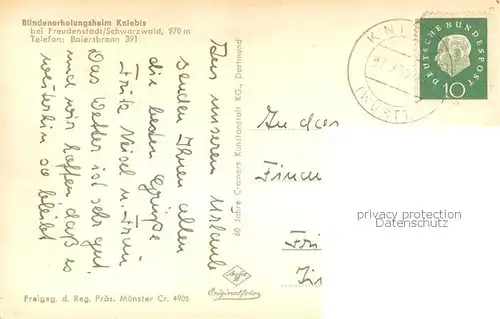 Blindenerholungsheim Kniebis
bei Freudenstadt/Schwarzwald, 970 m
Telefon: Baiersbronn 391
Aus unserem Urlaub
senden Ihnen allen
die besten Grüße
Fritz Neisel u. Frau
Das Wetter ist sehr gut
und wir hoffen, daß es
weiterhin so bleibt
60 Jahre Cramers Kunstanstalt KG., Dortmund
Agfa
Originalfoto
Freigeg. d. Reg. Präs. Münster Cr. 4905
KNI
(WÜRTT
DEUTSCHE BUNDESPOST
10
An das
privacy protection
Datenschutz